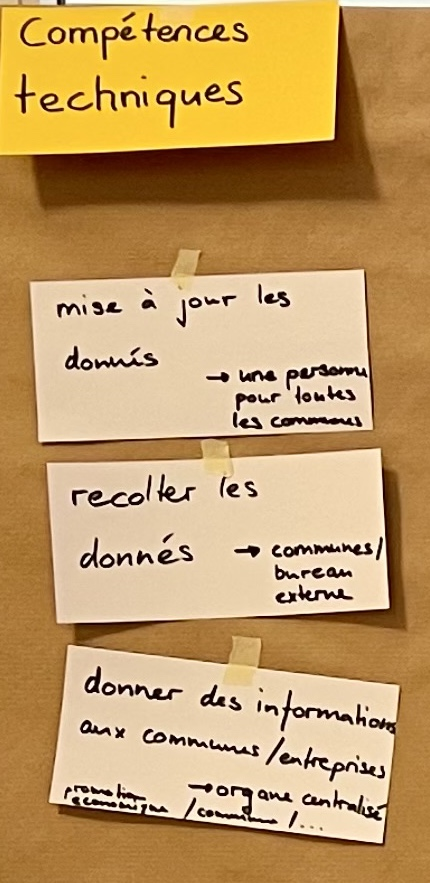 Compétences
techniques
mise à jour les
donnés
→ une personne
pour toutes
les communes
recolter les
donnés → communes/
bureau
externe
donner des informations
aux communes/entreprises
→ organe centralisé
promotion
économique /commune/...